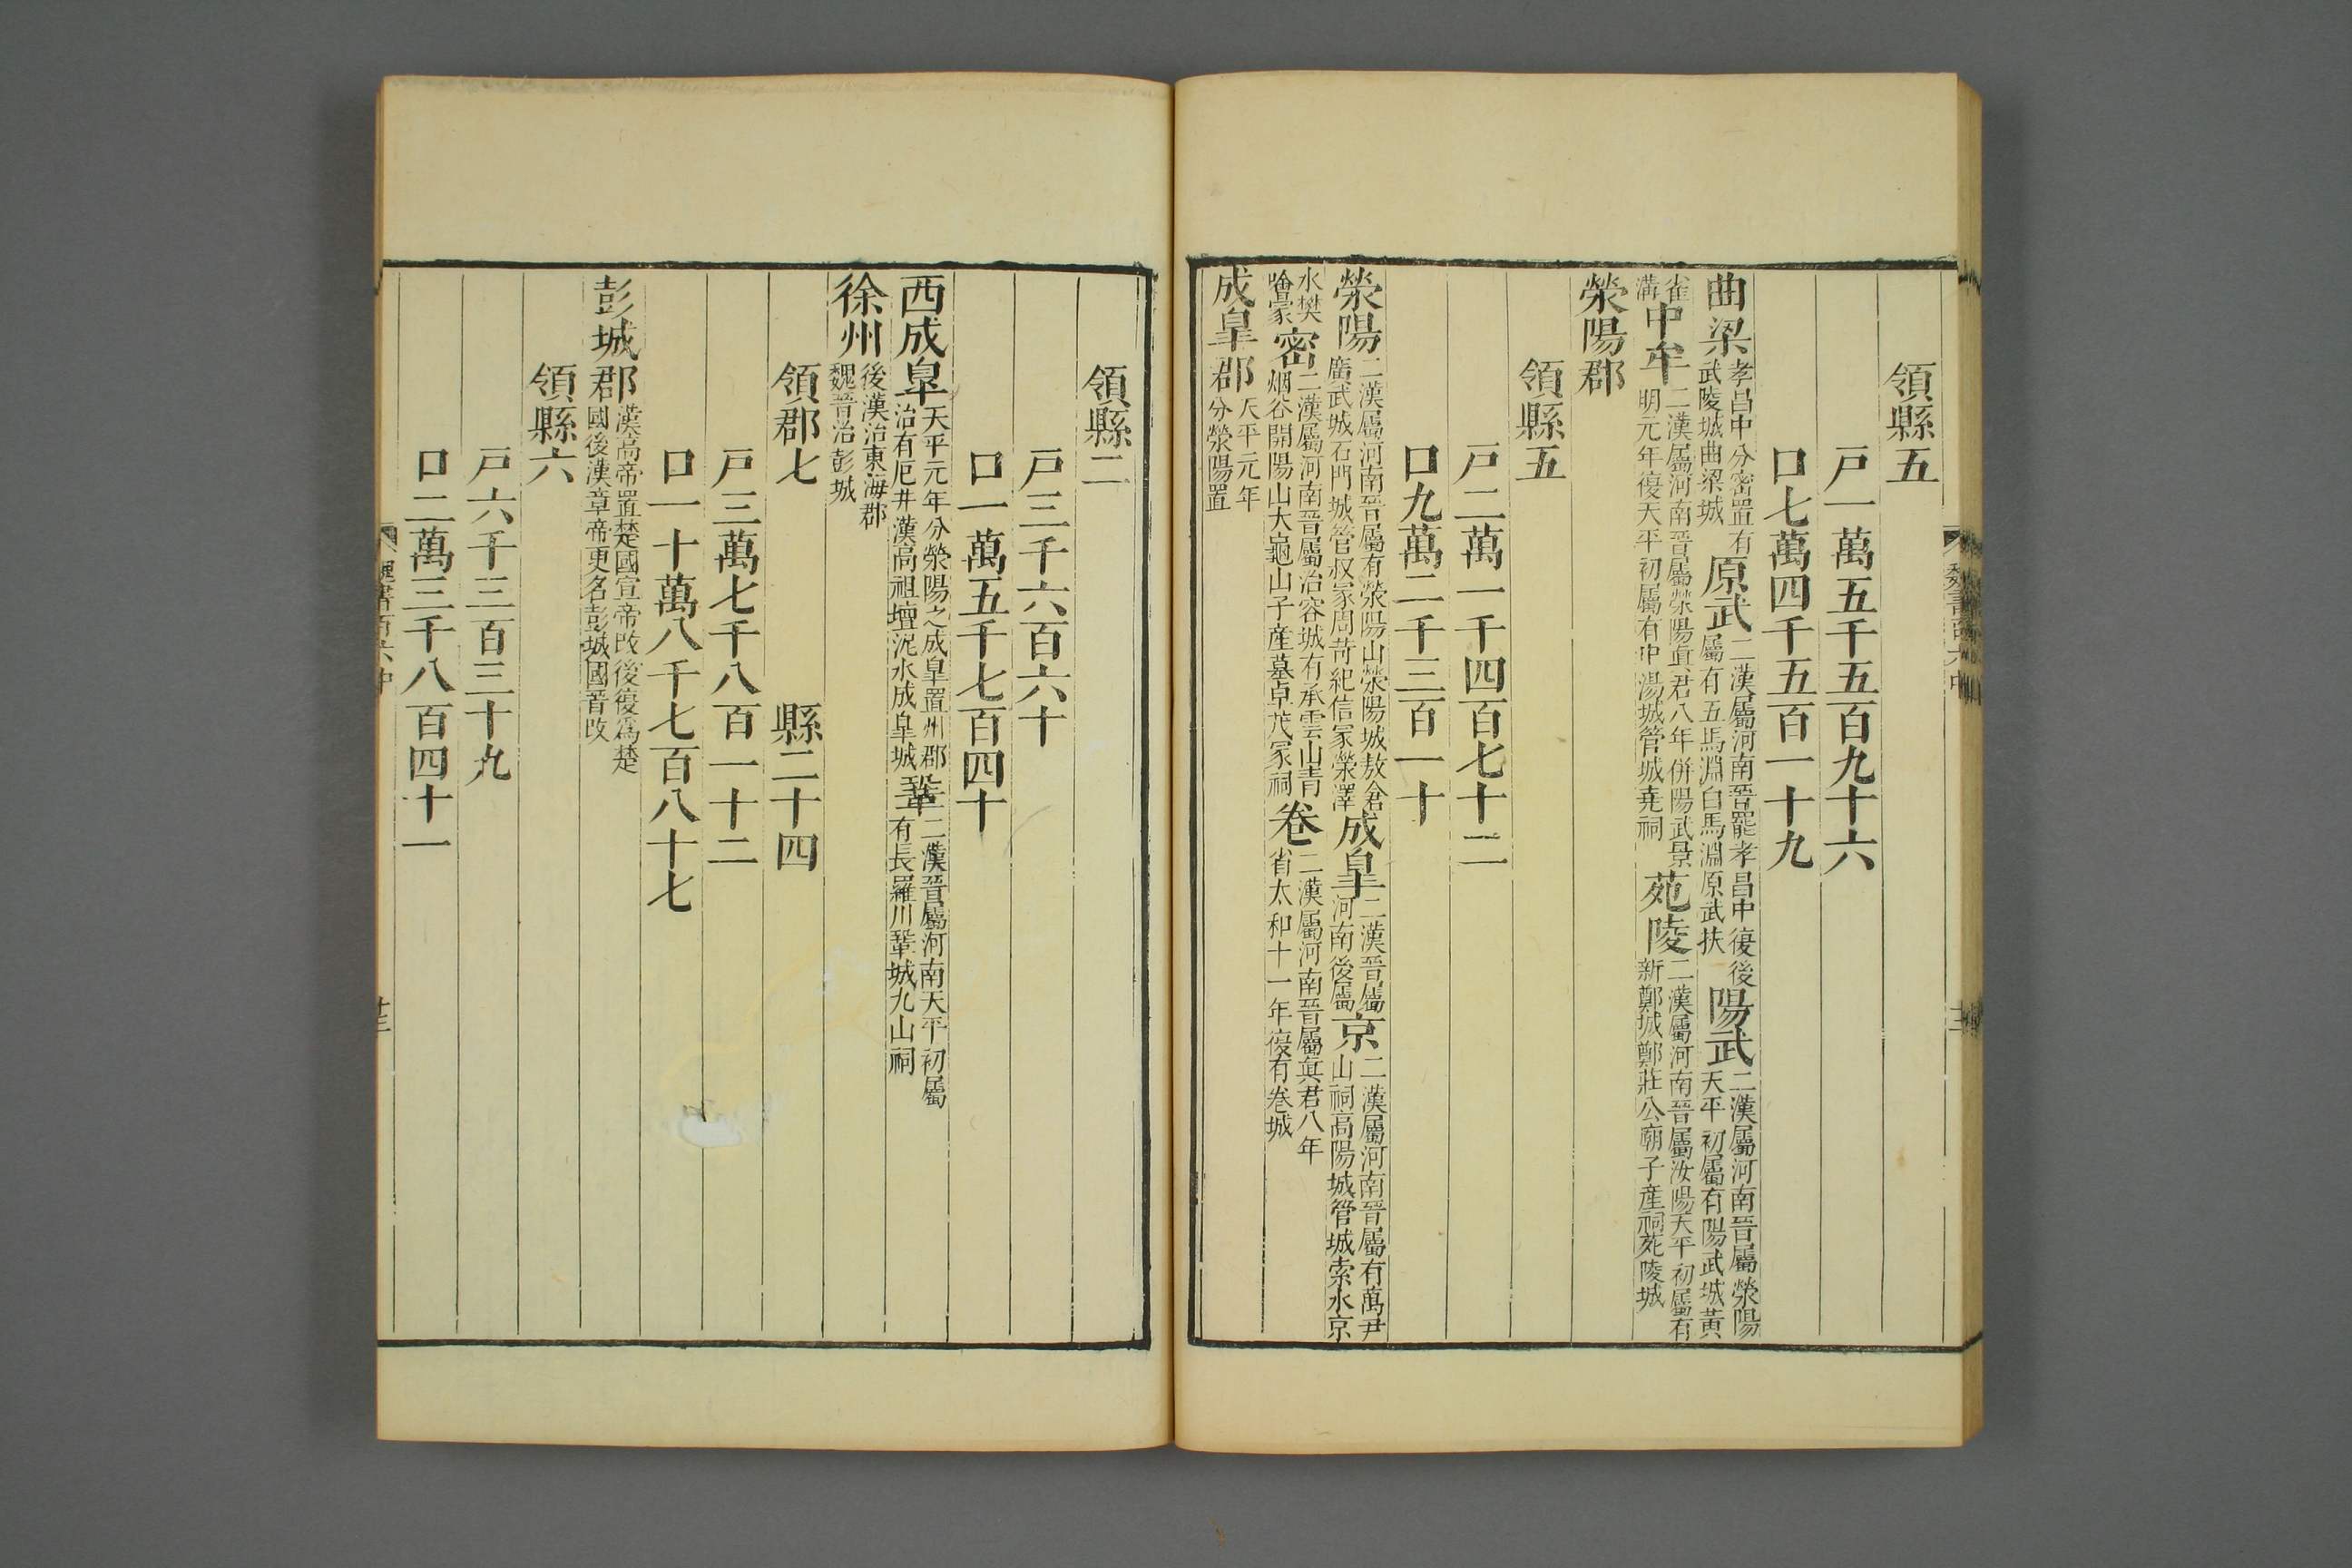 領縣五
戸一萬五千五百九十六
口七萬四千五百一十九
曲梁孝昌中分密置有武陵城曲梁城原武二漢屬河南晉罷孝昌中復後屬有五馬淵白馬淵原武扶陽武二漢屬河南晉屬滎陽天平初屬有陽武城黃
雀溝中牟二漢屬河南晉屬滎陽眞君八年併陽武景明元年復天平初屬有中湯城管城堯祠苑陵二漢屬河南晉屬汝陽天平初屬有新鄭城鄭莊公廟子產祠苑陵城
滎陽郡
領縣五
戸二萬一千四百七十二
口九萬二千三百一十
滎陽二漢屬河南晉屬有滎陽山滎陽城敖倉廣武城石門城管叔冢周苛紀信冢滎澤成臯二漢晉屬河南後屬京二漢屬河南晉屬有萬尹山祠高陽城管城索水京
水樊噲冢密二漢屬河南晉屬治容城有承雲山青烟谷開陽山大龜山子產墓卓茂冢祠卷二漢屬河南晉屬眞君八年省太和十一年復有卷城
成臯郡天平元年分滎陽置
領縣二
戸三千六百六十
口一萬五千七百四十
西成臯天平元年分滎陽之成臯置州郡治有厄井漢高祖壇汜水成臯城鞏二漢晉屬河南天平初屬有長羅川鞏城九山祠
徐州後漢治東海郡魏晉治彭城
領郡七 縣二十四
戸三萬七千八百一十二
口一十萬八千七百八十七
彭城郡漢高帝置楚國宣帝改後復爲楚國後漢章帝更名彭城國晉改
領縣六
戸六千三百三十九
口二萬三千八百四十一
魏書百六中
十三